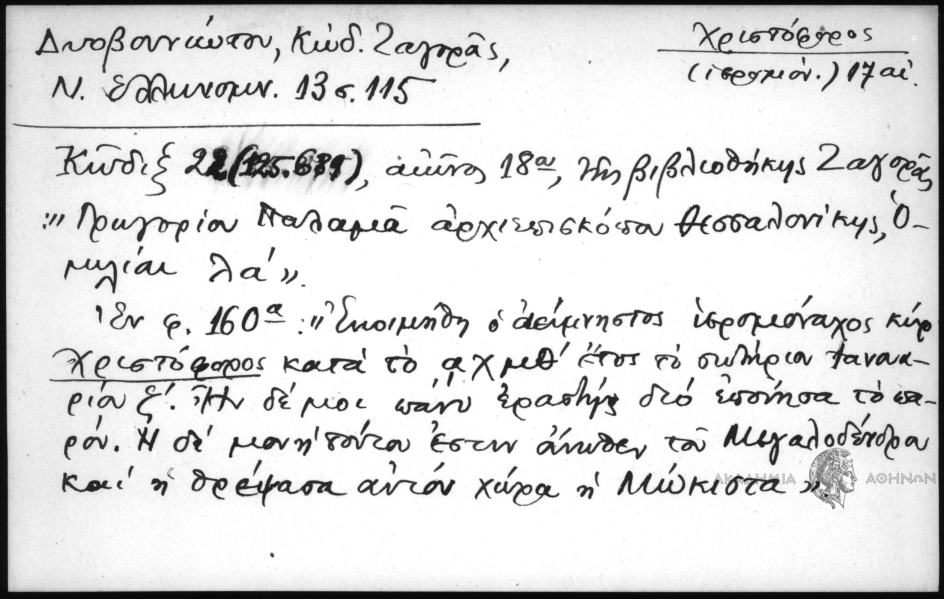 Δυοβουνιώτου, Κώδ. Ζαγορᾶς,
Χριστόφορος
Ν. Ἑλληνομν. 13 σ. 115
(ἱερομόν.) 17 αἰ.
Κῶδιξ 22 (125.639), αἰῶνος 18ου, τῆς βιβλιοθήκης Ζαγορᾶς
:" Γρηγορίου Παλαμᾶ ἀρχιεπισκόπου Θεσσαλονίκης, Ὁ-
μιλίαι λα' ".
Ἐν φ. 160α : " Ἐκοιμήθη ὁ ἀείμνηστος ἱερομόναχος κύρ
Χριστόφορος κατά τὸ αχμθ' ἔτος τὸ σωτήριον Ἰαννουα-
ρίου ζ'. Ἦν δέ μοι πάνυ ἐραστής διό ἐποίησα τὸ πα-
ρόν. Ἡ δέ μονή τούτου ἐστιν ἄνωθεν τοῦ Μεγαλοδένδρου
καί ἡ θρέψασα αὐτόν χώρα ἡ Μώκιστα ".
ΑΚΑΔΗΜΙΑ ΑΘΗΝΩΝ